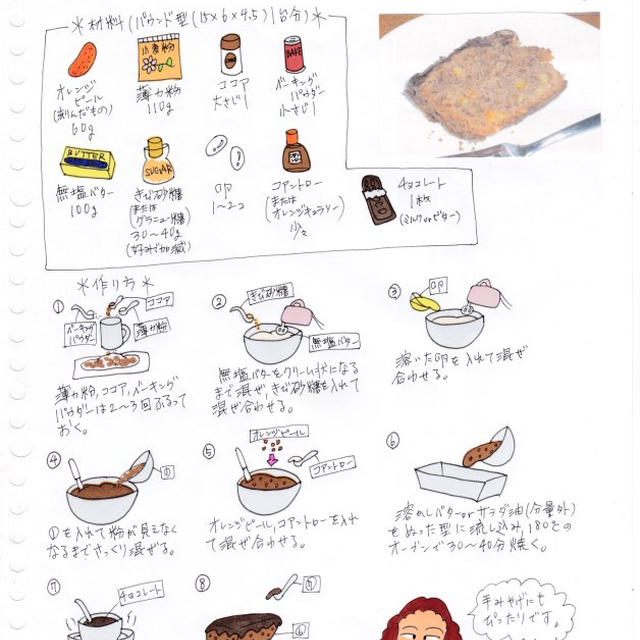 *材料(パウンド型(15×6×4.5)1台分)*
オレンジ
ピール
(刻んだもの)
60g
薄力粉
110g
ココア
大さじ1
BAKE
ベーキング
パウダー
小さじ1
BUTTER
無塩バター
100g
SUGAR
きび砂糖
(または
グラニュー糖)
30〜40g
(好みで加減)
卵
1〜2コ
コアントロー
(または
オレンジキュラソー)
少々
チョコレート
1枚
(ミルクorビター)
*作り方*
①
ココア
ベーキング
パウダー
薄力粉
薄力粉,ココア,ベーキング
パウダーは2〜3回ふるって
おく。
②
きび砂糖
無塩バター
無塩バターをクリーム状になる
まで混ぜ,きび砂糖を入れて
混ぜ合わせる。
③
卵
溶いた卵を入れて混ぜ
合わせる。
④
①
①を入れて粉が見えなく
なるまでさっくり混ぜる。
⑤
オレンジピール
コアントロー
オレンジピール,コアントローを入れ
て混ぜ合わせる。
⑥
溶かしバターorサラダ油(分量外)
をぬった型に流し込み,180℃の
オーブンで30〜40分焼く。
⑦
チョコレート
⑧
⑦
⑥
手みやげにも
ぴったりです。